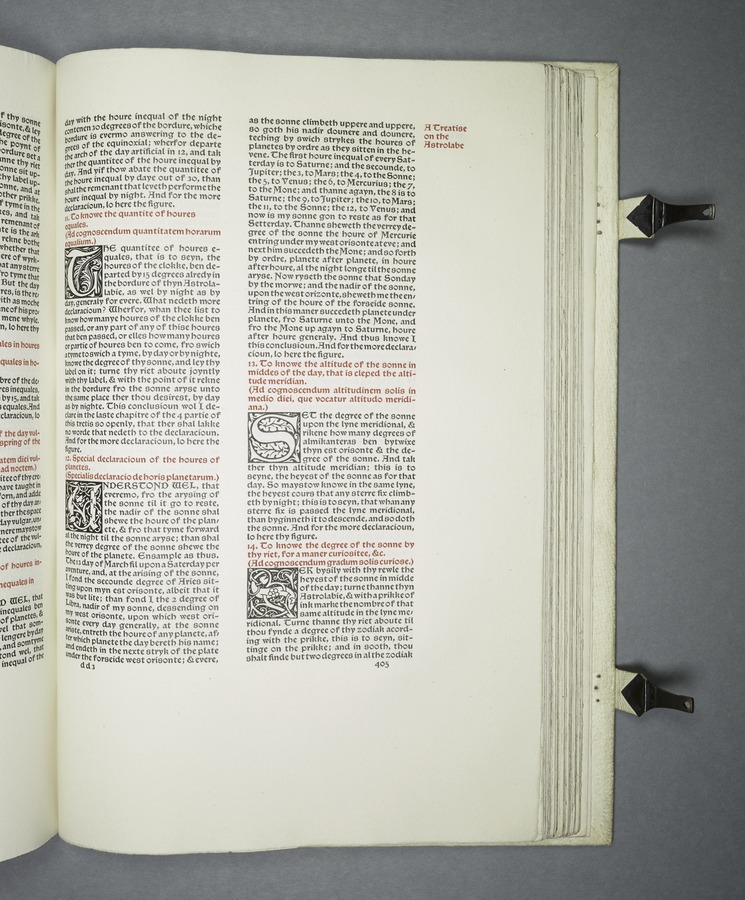 day with the houre inequal of the night
contenen 30 degrees of the bordure, whiche
bordure is evermo answering to the de-
grees of the equinoxial; wherfor departe
the arch of the day artificial in 12, and tak
ther the quantitee of the houre inequal by
day. And yif thow abate the quantitee of
the houre inequal by daye out of 30, than
shal the remenant that leveth performe the
houre inequal by night. And for the more
declaracioun, lo here the figure.
11. To knowe the quantite of houres
equales.
(Ad cognoscendum quantitatem horarum
equalium.)
THE quantitee of houres e-
quales, that is to seyn, the
houres of the clokke, ben de-
parted by 15 degrees alredy in
the bordure of thyn Astrola-
labie, as wel by night as by
day, generaly for evere. What nedeth more
declaracioun? Wherfor, whan thee list to
know how manye houres of the clokke ben
passed, or any part of any of thise houres
that ben passed, or elles how many houres
or partie of houres ben to come, fro swich
a tyme to swich a tyme, by day or by nighte,
knowe the degree of thy sonne, and ley thy
label on it; turne thy riet aboute joyntly
with thy label, & with the point of it rekne
in the bordure fro the sonne aryse unto
the same place ther thou desirest, by day
as by nighte. This conclusioun wol I de-
clare in the laste chapitre of the 4 partie of
this tretis so openly, that ther shal lakke
no worde that nedeth to the declaracioun.
And for the more declaracioun, lo here the
figure.
12. Special declaracioun of the houres of
planetes.
(Specialis declaracio de horis planetarum.)
UNDERSTOND WEL, that
evermo, fro the arysing of
the sonne til it go to reste,
the nadir of the sonne shal
shewe the houre of the plan-
ete, & fro that tyme forward
al the night til the sonne aryse; than shal
the verrey degree of the sonne shewe the
houre of the planete. Ensample as thus.
The 13 day of March fil upon a Saterday per
aventure, and, at the arising of the sonne,
I fond the secounde degree of Aries sit-
ting upon myn est orisonte, albeit that it
was but lite; than fond I the 2 degree of
Libra, nadir of my sonne, dessending on
my west orisonte, upon which west ori-
sonte every day generally, at the sonne
ariste, entreth the houre of any planete, af-
ter which planete the day bereth his name;
and endeth in the nexte stryk of the plate
under the forseide west orisonte; & evere,
dd3
as the sonne climbeth uppere and uppere,
so goth his nadir dounere and dounere,
teching by swich strykes the houres of
planetes by ordre as they sitten in the he-
vene. The first houre inequal of every Sat-
terday is to Saturne; and the secounde, to
Jupiter; the 3, to Mars; the 4, to the Sonne;
the 5, to Venus; the 6, to Mercurius; the 7,
to the Mone; and thanne agayn, the 8 is to
Saturne; the 9, to Jupiter; the 10, to Mars;
the 11, to the Sonne; the 12, to Venus; and
now is my sonne gon to reste as for that
Setterday. Thanne sheweth the verrey de-
gree of the sonne the houre of Mercurie
entring under my west orisonte at eve; and
next him succedeth the Mone; and so forth
by ordre, planete after planete, in houre
after houre, al the night longe til the sonne
aryse. Now ryseth the sonne that Sonday
by the morwe; and the nadir of the sonne,
upon the west orizonte, sheweth me the en-
tring of the houre of the forseide sonne.
And in this maner succedeth planete under
planete, fro Saturne unto the Mone, and
fro the Mone up agayn to Saturne, houre
after houre generaly. And thus knowe I
this conclusioun. And for the more declara-
cioun, lo here the figure.
13. To knowe the altitude of the sonne in
middes of the day, that is cleped the alti-
tude meridian.
(Ad cognoscendum altitudinem solis in
medio diei, que vocatur altitudo meridi-
ana.)
SET the degree of the sonne
upon the lyne meridional, &
rikene how many degrees of
almikanteras ben bytwixe
thyn est orisonte & the de-
gree of the sonne. And tak
ther thyn altitude meridian; this is to
seyne, the heyest of the sonne as for that
day. So maystow knowe in the same lyne,
the heyest cours that any sterre fix climb-
eth by night; this is to seyn, that whan any
sterre fix is passed the lyne meridional,
than byginneth it to descende, and so doth
the sonne. And for the more declaracioun,
lo here thy figure.
14. To knowe the degree of the sonne by
thy riet, for a maner curiositee, &c.
(Ad cognoscendum gradum solis curiose.)
SEK bysily with thy rewle the
heyest of the sonne in midde
of the day; turne thanne thyn
Astrolabie, & with a prikke of
ink marke the nombre of that
same altitude in the lyne me-
ridional. Turne thanne thy riet aboute til
thou fynde a degree of thy zodiak acord-
ing with the prikke, this is to seyn, sit-
tinge on the prikke; and in sooth, thou
shalt finde but two degrees in al the zodiak
405
A Treatise
on the
Astrolabe